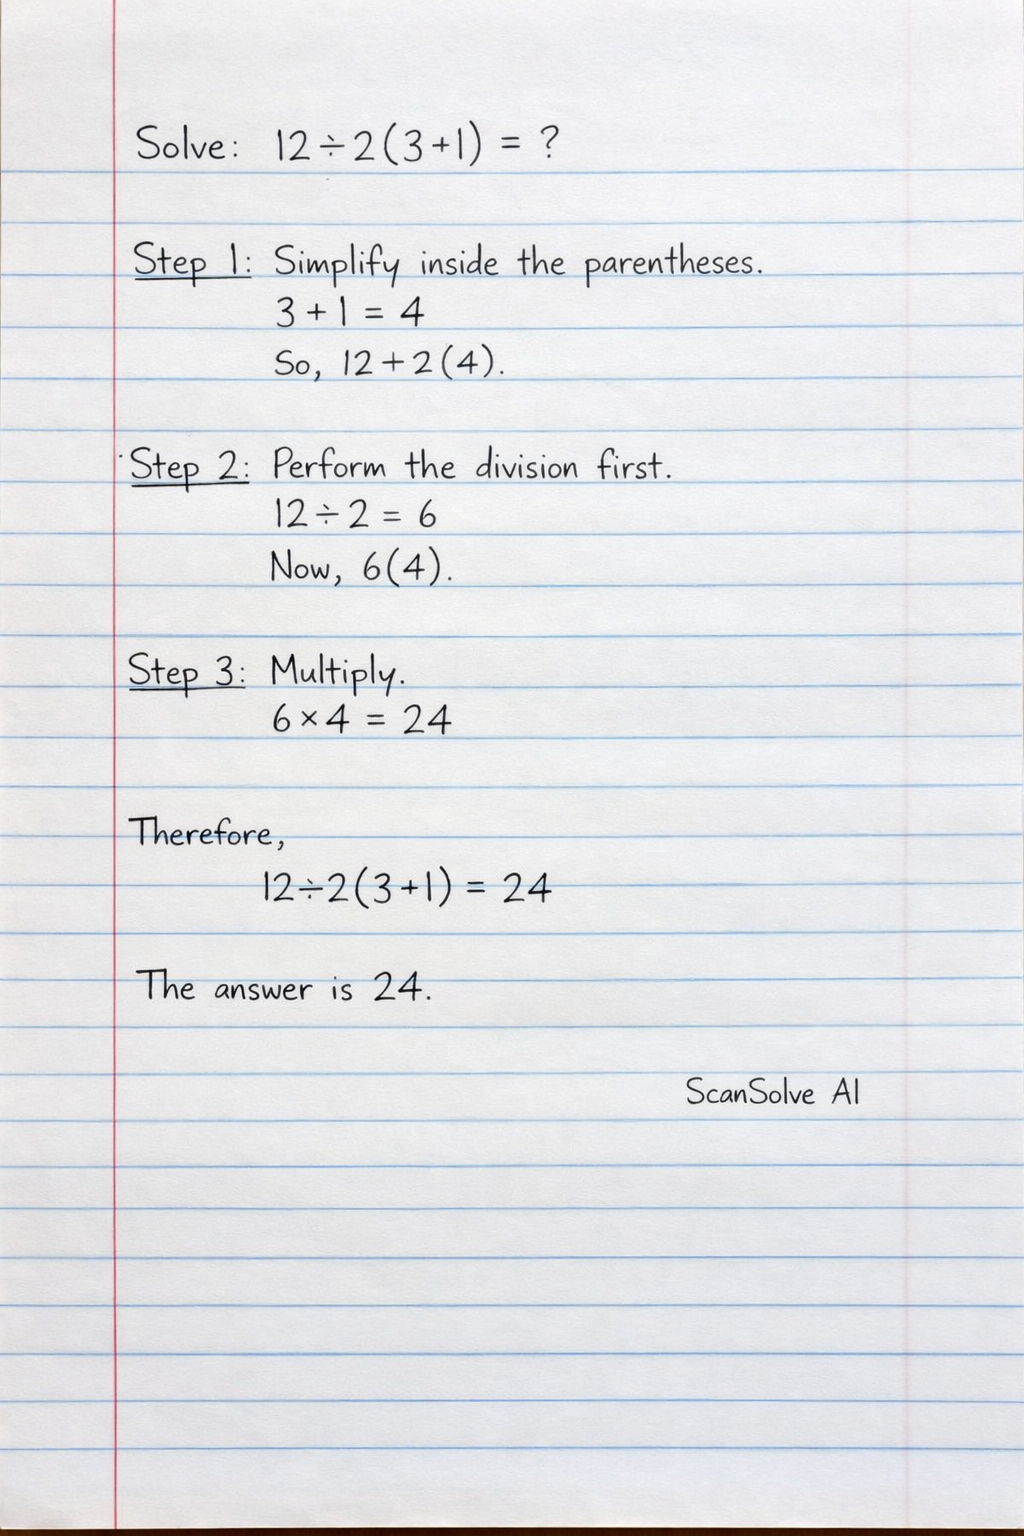 Solve: 12÷2(3+1) = ?
Step 1: Simplify inside the parentheses.
3+1 = 4
So, 12+2(4).
Step 2: Perform the division first.
12÷2 = 6
Now, 6(4).
Step 3: Multiply.
6×4 = 24
Therefore,
12÷2(3+1) = 24
The answer is 24.
ScanSolve AI